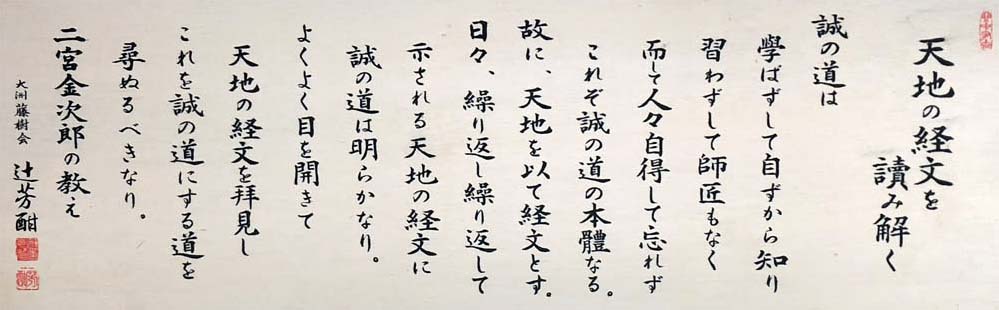 天地の経文を
読み解く
誠の道は
學ばずして自ずから知り
習わずして師匠もなく
而して人々自得して忘れず
これぞ誠の道の本體なる。
故に、天地を以て経文とす。
日々、繰り返し繰り返して
示される天地の経文に
誠の道は明らかなり。
よくよく目を開きて
天地の経文を拝見し
これを誠の道にする道を
尋ぬるべきなり。
二宮金次郎の教え
大洲藤樹会
辻芳酣